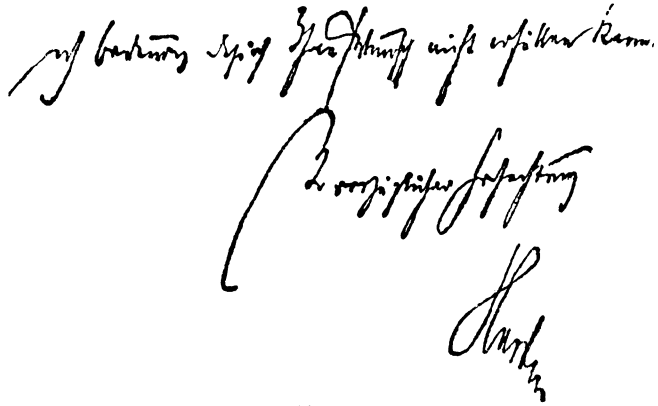 Ich bedaure daß ich Ihren Wunsch nicht erfüllen kann.
vorzüglicher Hochachtung